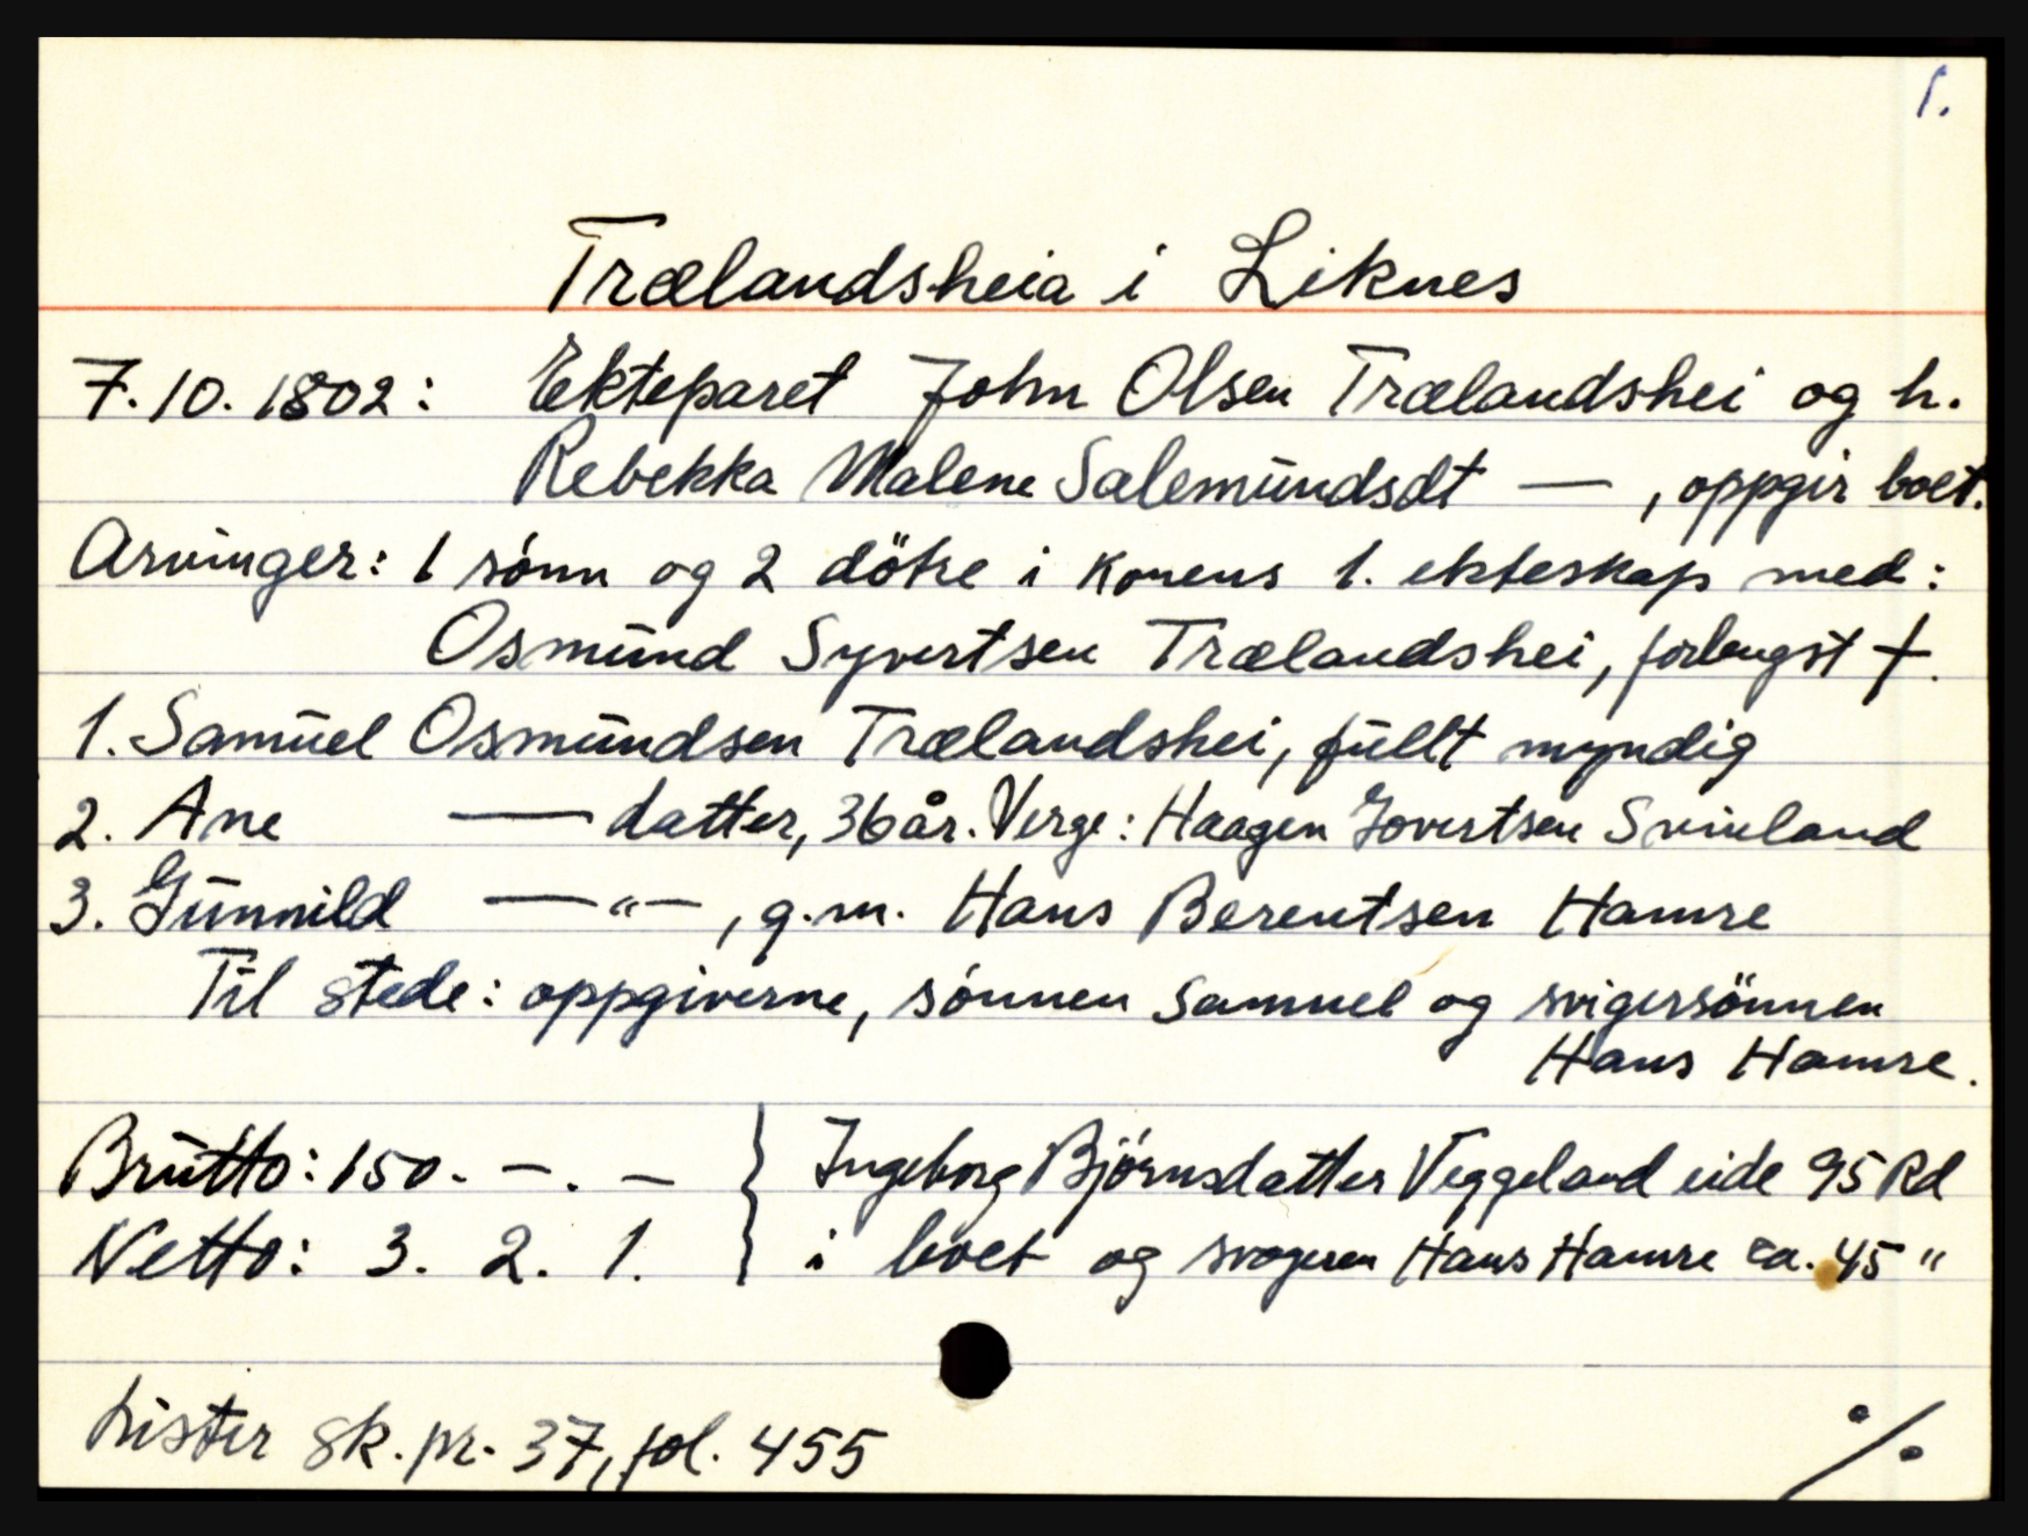 1.
Trælandsheia i Liknes
7.10.1802: Ekteparet John Olsen Trælandshei og h.
Rebekka Malene Salemundsdt — , oppgir boet.
Arvinger: 1 sønn og 2 døtre i konens 1. ekteskap med:
Osmund Syvertsen Trælandshei, forlengst †.
1. Samuel Osmundsen Trælandshei, fullt myndig
2. Ane — datter, 36 år. Verge: Haagen Govertsen Svinland
3. Gunnild — " — , g.m. Hans Berentsen Hamre
Til stede: oppgiverne, sønnen Samuel og svigersønnen
Hans Hamre.
Brutto: 150. – . – } Ingeborg Bjørnsdatter Veggeland eide 95 Rd
Netto: 3. 2. 1. } i boet og svogeren Hans Hamre ca. 45 "
Lister sk.pr. 37, fol. 455
./.